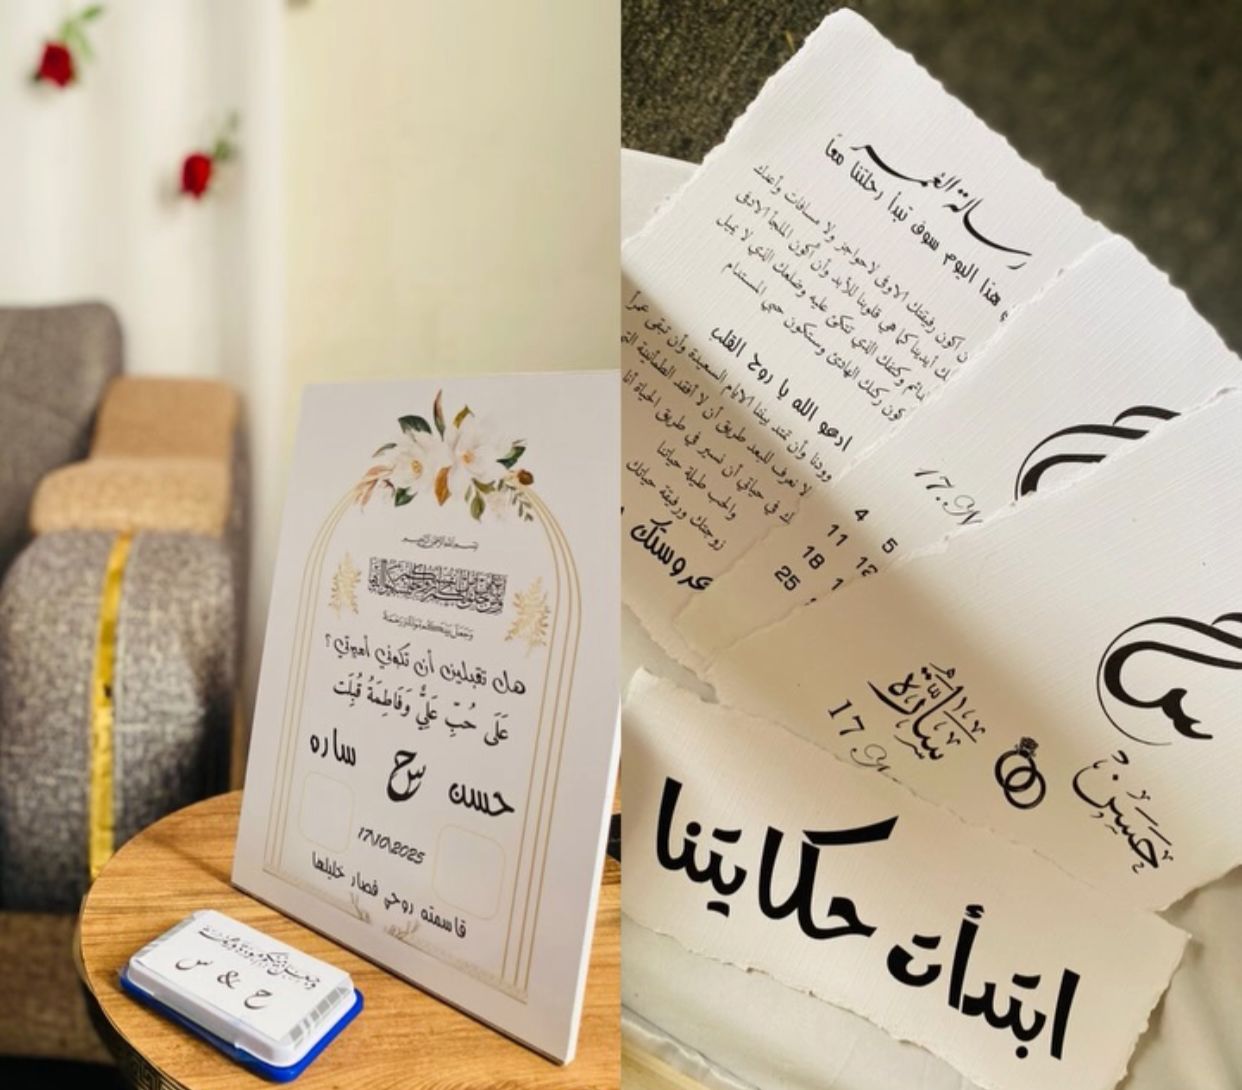 بسم الله الرحمن الرحيم
وجعل بينكم مودة ورحمة
هل تقبلين أن تكوني أميرتي ؟
عَلَى حُبِّ عَلِيٍّ وَفَاطِمَةُ قُبِلَت
حسن
س ح
ساره
17\10\2025
قاسمته روحي فصار خليلها
وجعل بينكم مودة ورحمة
ح & س
رسالة العمر
هذا اليوم سوف تبدأ رحلتنا معاً
اكون رفيقتك الاوفى لاحواجز ولا مسافات وأعدك
أيدينا كما هي قلوبنا للأبد وأن أكون الملجأ الادفى
وكتفك الذي تتكئ عليه وضلعك الذي لا يميل
ركنك الهادئ وستكون حبي المستدام
ادعو الله يا روح القلب
وودنا وأن تمتد بيننا الايام السعيدة وأن تبقى عمراً
لا نعرف للبعد طريق أن لا أفقد الطمأنينة التي
في حياتي أن نسير في طريق الحياة أنا
والحب طيلة حياتنا
زوجتك ورفيقة حياتك
عروستك
4 5
11 12
18 1
25
17.
سارة
17
حسن
ابتدأت حكايتنا